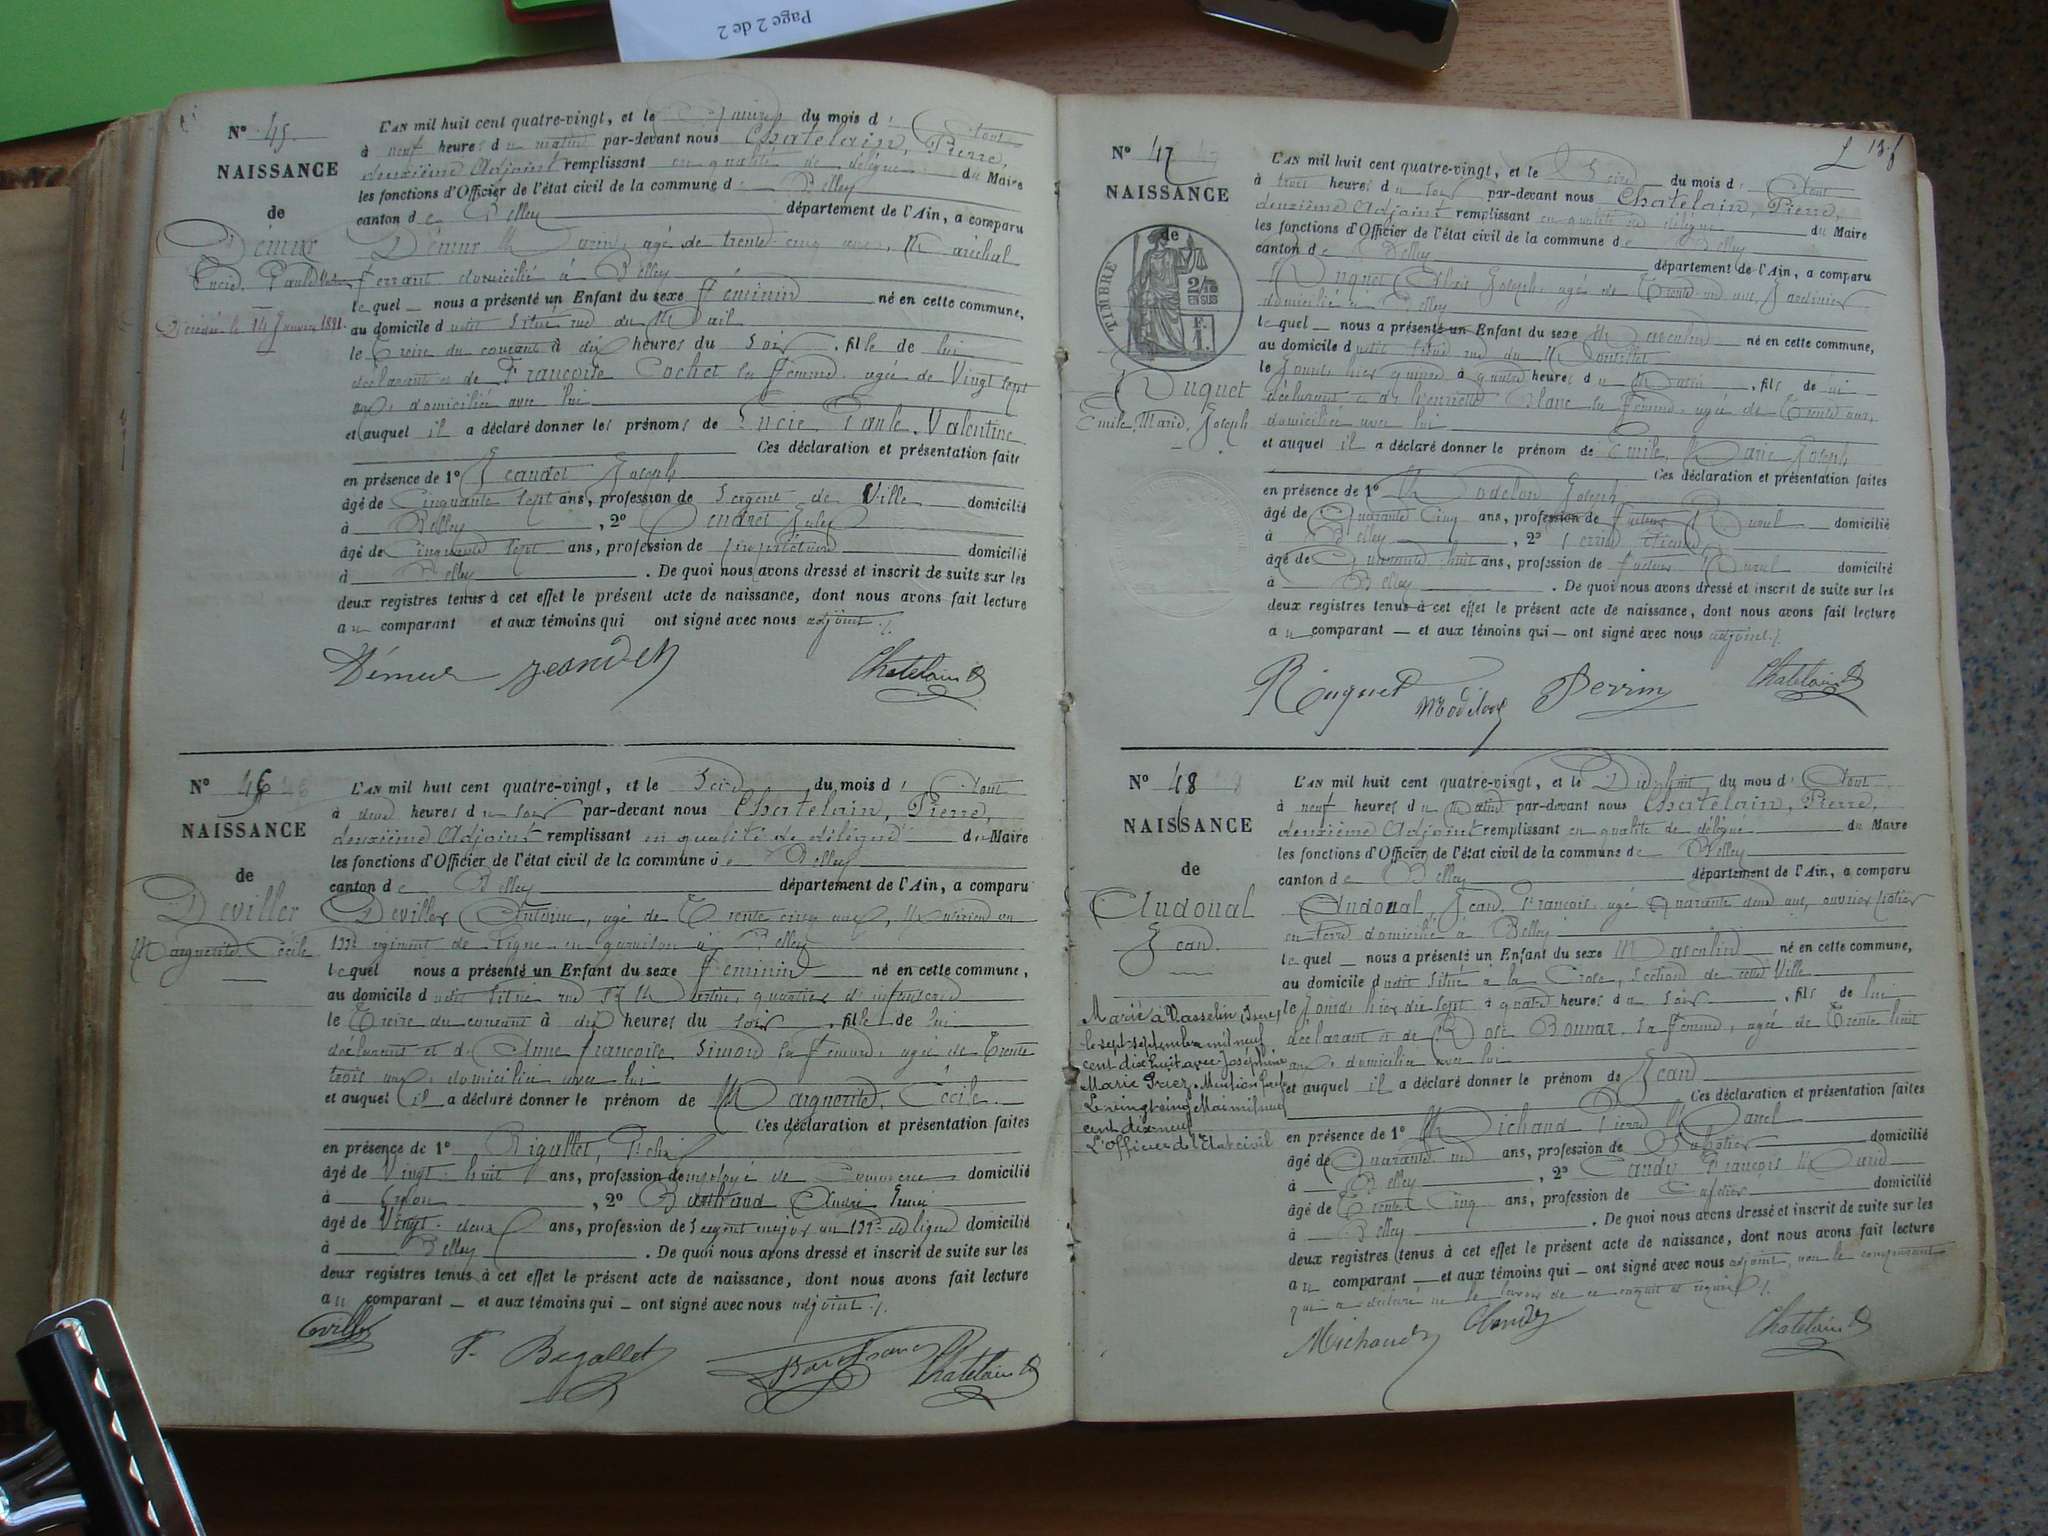 Page 2 de 2
N° 45
NAISSANCE
de
Démur
Lucie, Paule
Décédée le 14 Janvier 1881.
L'AN mil huit cent quatre-vingt, et le Quinze du mois d'Aout
à neuf heures du matin par-devant nous Chatelain, Pierre,
deuxième Adjoint remplissant en qualité de délégué du Maire
les fonctions d'Officier de l'état civil de la commune de Belley
canton de Belley département de l'Ain, a comparu
Démur agé de trente cinq ans, Maréchal
ferrant domicilié à Belley
lequel nous a présenté un Enfant du sexe féminin né en cette commune,
au domicile dudit situé rue du Mail
le treize du courant à dix heures du soir, fille de lui
déclarant et de Françoise Cochet sa femme, agée de Vingt sept
ans, domiciliée avec lui
et auquel il a déclaré donner les prénoms de Lucie Paule Valentine
Ces déclaration et présentation faites
en présence de 1° Jeandet Joseph
âgé de Cinquante sept ans, profession de Sergent de Ville domicilié
à Belley, 2° Gendret Jules
âgé de Cinquante sept ans, profession de propriétaire domicilié
à Belley. De quoi nous avons dressé et inscrit de suite sur les
deux registres tenus à cet effet le présent acte de naissance, dont nous avons fait lecture
au comparant et aux témoins qui ont signé avec nous adjoint ./.
Démur Chatelain
N° 46
NAISSANCE
de
Deviller
Marguerite Cécile
L'AN mil huit cent quatre-vingt, et le Seize du mois d'Aout
à deux heures du soir par-devant nous Chatelain, Pierre,
deuxième Adjoint remplissant en qualité de délégué du Maire
les fonctions d'Officier de l'état civil de la commune de Belley
canton de Belley département de l'Ain, a comparu
Deviller Antoine, agé de Trente cinq ans, Musicien au
133e régiment de Ligne en garnison à Belley
lequel nous a présenté un Enfant du sexe féminin né en cette commune,
au domicile dudit situé rue St Martin, quartier d'infanterie
le Treize du courant à dix heures du soir, fille de lui
déclarant et de Anne Françoise Simon sa femme, agée de Trente
trois ans, domiciliée avec lui
et auquel il a déclaré donner le prénom de Marguerite, Cécile.
Ces déclaration et présentation faites
en présence de 1° Bigallet, Félix
âgé de Vingt-huit ans, profession d'employé de Commerce domicilié
à Lyon, 2° André
âgé de Vingt-deux ans, profession de Sergent major au 133e de ligne domicilié
à Belley. De quoi nous avons dressé et inscrit de suite sur les
deux registres tenus à cet effet le présent acte de naissance, dont nous avons fait lecture
au comparant — et aux témoins qui — ont signé avec nous adjoint ./.
Deviller F. Bigallet Chatelain
N° 47
NAISSANCE
de
TIMBRE
2/10 EN SUS
Ruguet
Emile, Marie, Joseph
L'AN mil huit cent quatre-vingt, et le Seize du mois d'Aout
à trois heures du soir par-devant nous Chatelain, Pierre,
deuxième Adjoint remplissant en qualité de délégué du Maire
les fonctions d'Officier de l'état civil de la commune de Belley
canton de Belley département de l'Ain, a comparu
Ruguet Joseph, agé de Trente ans, Jardinier
domicilié à Belley
lequel — nous a présenté un Enfant du sexe Masculin né en cette commune,
au domicile dudit situé rue du
le jour d'hier quinze à quatre heures du Matin, fils de lui
déclarant et de Henriette Blanc sa femme, agée de Trente ans,
domiciliée avec lui
et auquel il a déclaré donner le prénom de Emile, Marie Joseph
Ces déclaration et présentation faites
en présence de 1° Modelon Joseph
âgé de Quarante Cinq ans, profession de facteur Rural domicilié
à Belley, 2° Perrin
âgé de Quarante huit ans, profession de facteur Rural domicilié
à Belley. De quoi nous avons dressé et inscrit de suite sur les
deux registres tenus à cet effet le présent acte de naissance, dont nous avons fait lecture
au comparant — et aux témoins qui — ont signé avec nous adjoint ./.
Ruguet Modelon Perrin Chatelain
N° 48
NAISSANCE
de
Audoual
Jean
Marié à Vasselin (Isère)
le sept septembre mil neuf
cent dix huit avec Joséphine
Marie
Le vingt cinq Mai mil neuf
cent dix neuf
L'Officier de l'état civil
L'AN mil huit cent quatre-vingt, et le Dix huit du mois d'Aout
à neuf heures du Matin par-devant nous Chatelain, Pierre,
deuxième Adjoint remplissant en qualité de délégué du Maire
les fonctions d'Officier de l'état civil de la commune de Belley
canton de Belley département de l'Ain, a comparu
Audoual, Jean, François, agé Quarante deux ans, ouvrier potier
en terre domicilié à Belley
lequel — nous a présenté un Enfant du sexe Masculin né en cette commune,
au domicile dudit situé à la Croze, section de cette Ville
le jour d'hier dix sept à quatre heures du soir, fils de lui
déclarant et de Rose Bonnaz sa femme, agée de Trente huit
ans, domiciliée avec lui
et auquel il a déclaré donner le prénom de Jean
Ces déclaration et présentation faites
en présence de 1° Michaud Pierre Marcel
âgé de Quarante ans, profession de Sabotier domicilié
à Belley, 2° François Marie
âgé de Trente Cinq ans, profession de Cafetier domicilié
à Belley. De quoi nous avons dressé et inscrit de suite sur les
deux registres tenus à cet effet le présent acte de naissance, dont nous avons fait lecture
au comparant — et aux témoins qui — ont signé avec nous adjoint, non le comparant
qui a déclaré ne le savoir de ce enquis et requis ./.
Michaud Chatelain